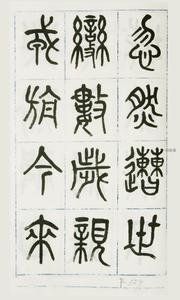 忽然遭世
變數歲親
戎旃今來